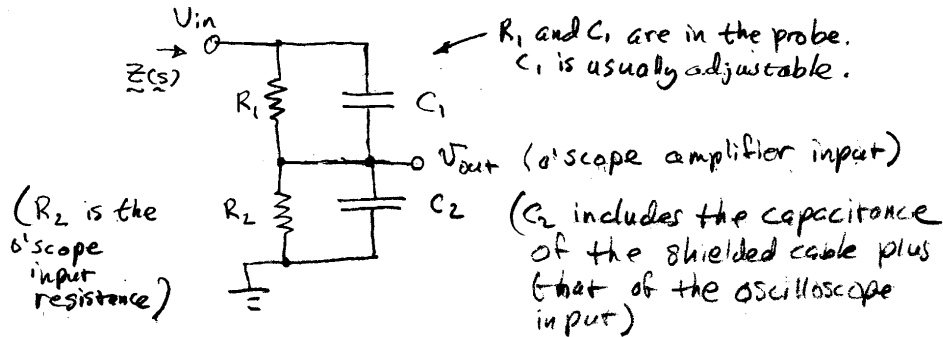 Vin
Z(s)
R1 and C1 are in the probe.
C1 is usually adjustable.
R1
C1
Vout (o'scope amplifier input)
(R2 is the
o'scope
input
resistance)
R2
C2
(C2 includes the capacitance
of the shielded cable plus
that of the oscilloscope
input)